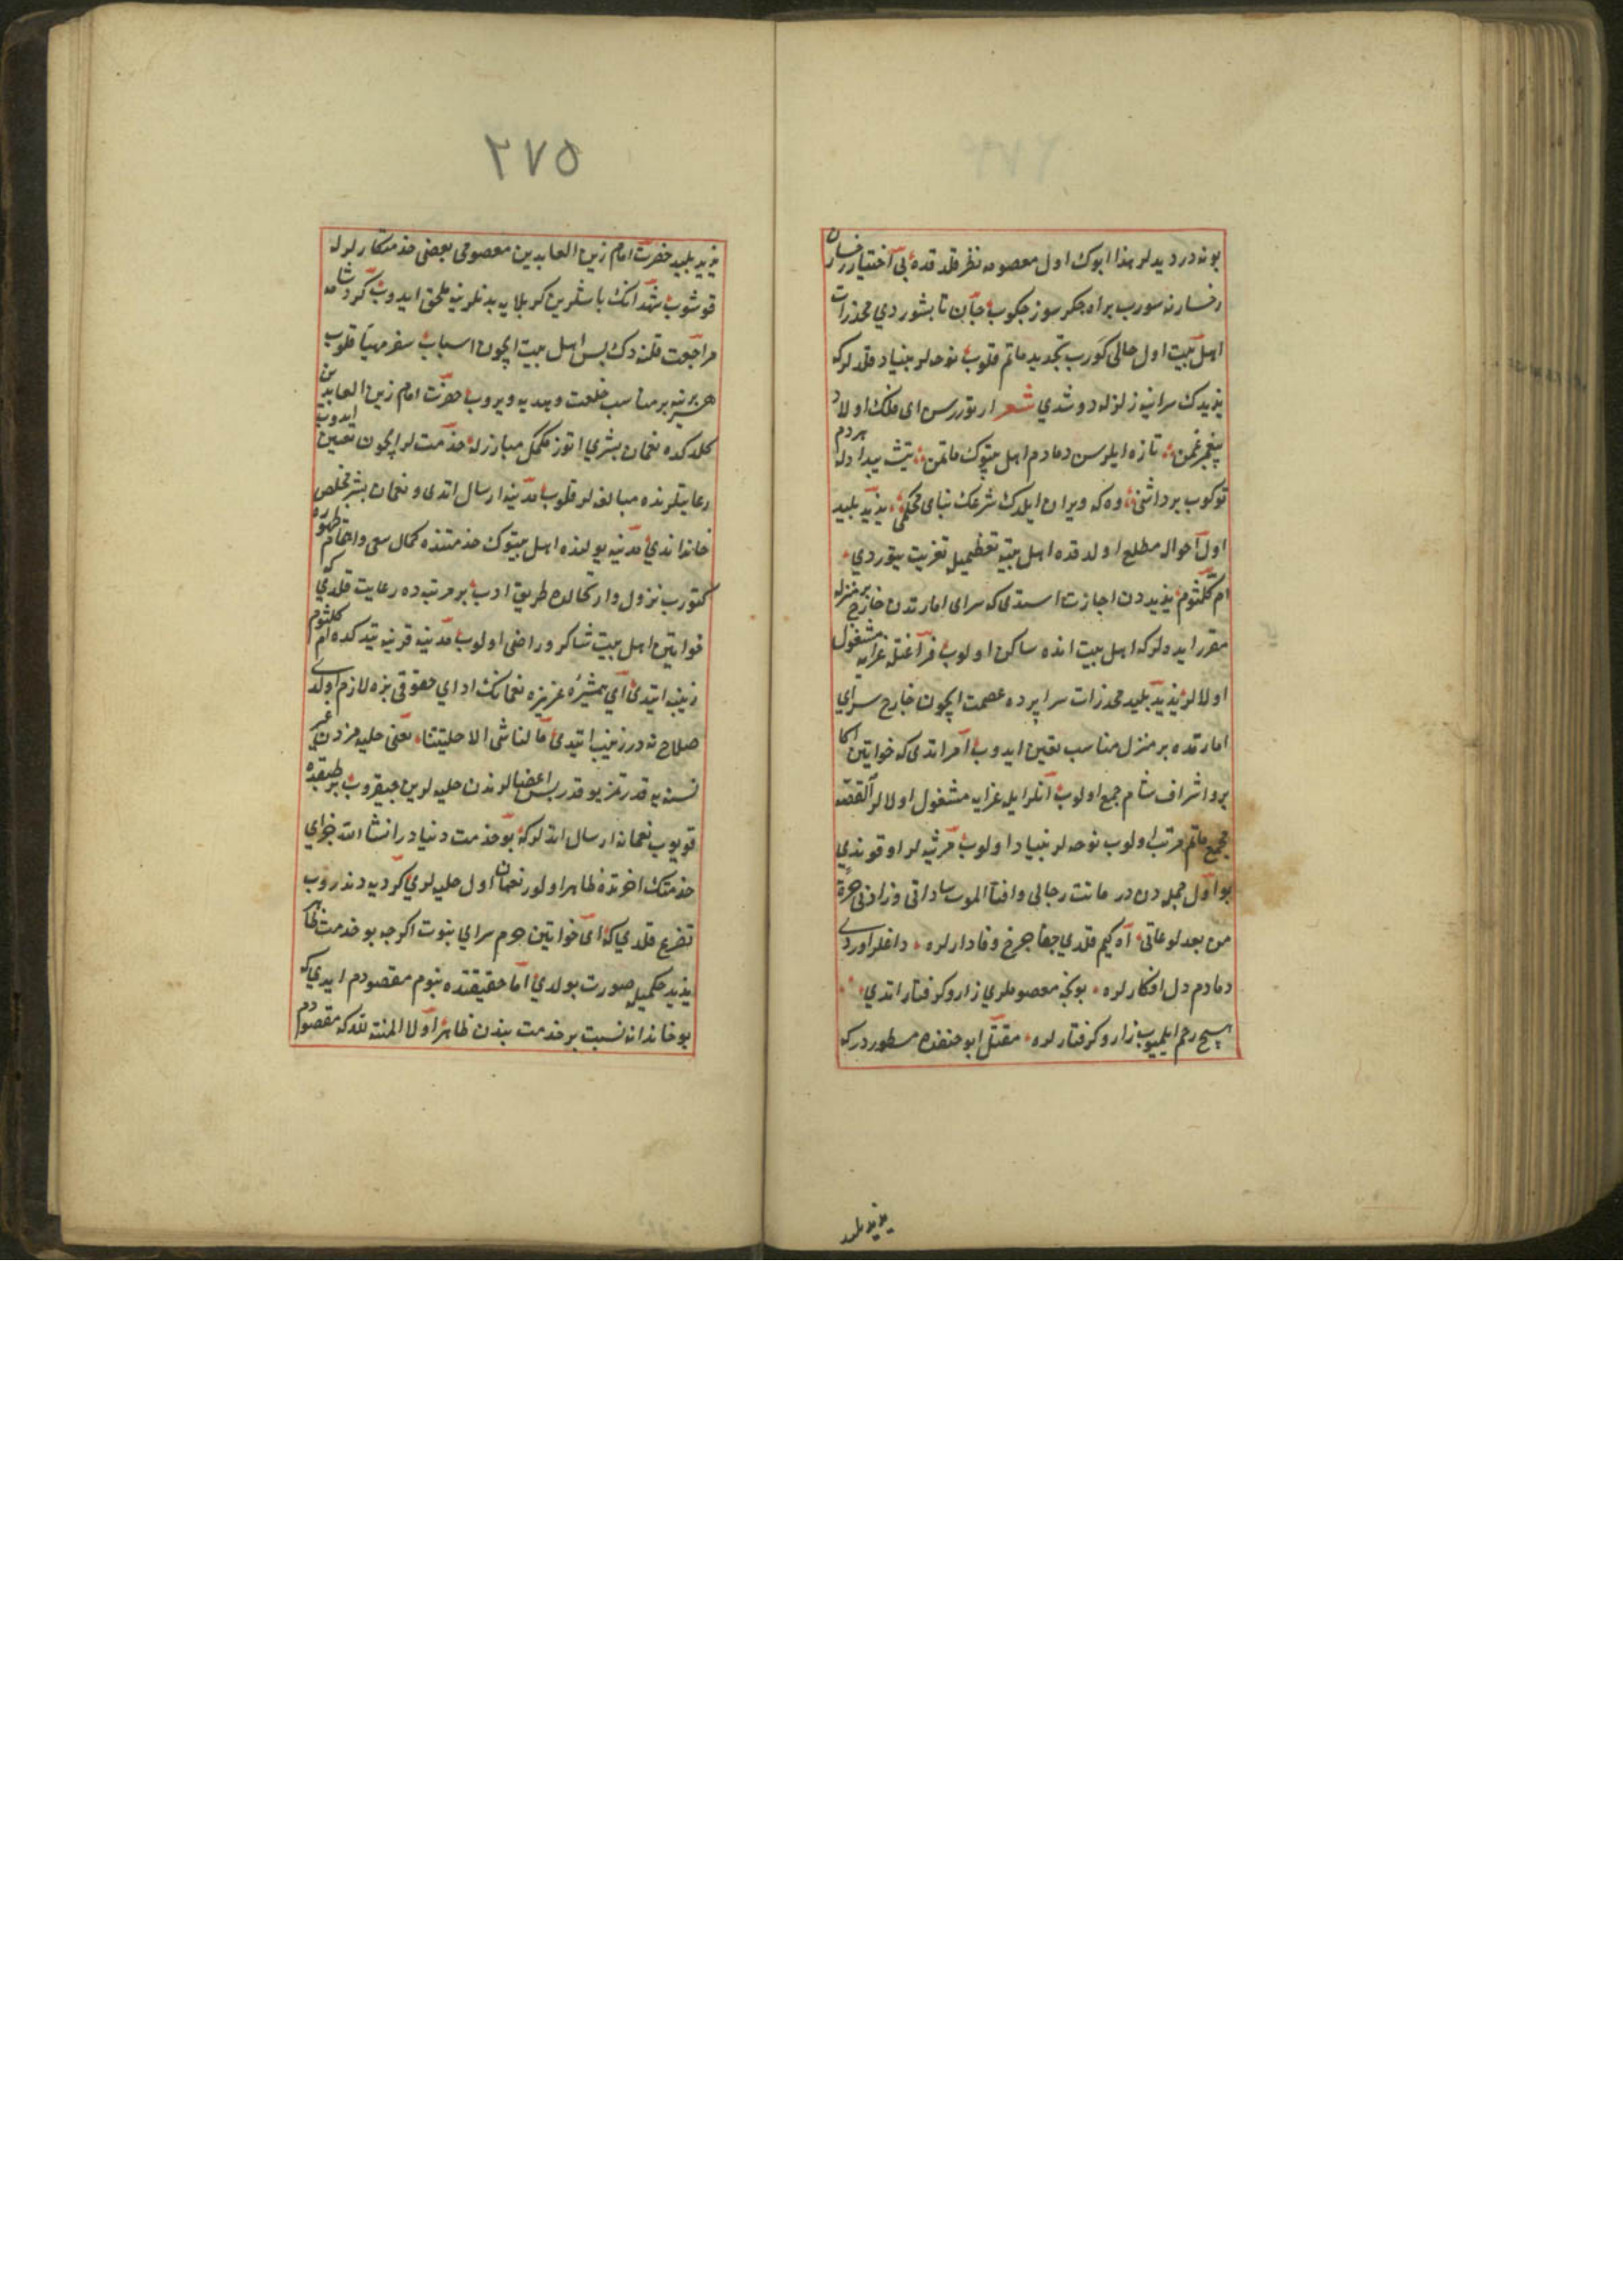 بو نه در دیدلر هذا ابوك اول معصومه نظر قلدقده بی اختیار رخسارن
رخسارنه سورب بر اه جکر سوز چکوب جان تابشوردی مخدرات
اهل بیت اول حالی کورب تجدید ماتم قلوب نوحه لر بنیاد قلدلر که
یزیدك سراینه زلزله دوشدی شعر ارتوررسن ای فلك اولاد
پیغمبر غمن تازه ایلرسن دمادم اهل بیتوك ماتمن هردم
توکوب بر داشنی وه که ویران ایلدك شرعك بنای محکمی یزید پلید
اول احوال مطلع اولدقده اهل بیته تعظیمله تعزیت یتوردی
ام کلثوم یزیددن اجازت استدی که سرای امارتدن خارج بر منزل
مقرر ایده لر که اهل بیت انده ساکن اولوب فراغتله عزایه مشغول
اولالر یزید پلید مخدرات سراپرده عصمت ایچون خارج سرای
امارتده بر منزل مناسب تعین ایدوب امر اتدی که خواتین اکا
بر و اشراف شام جمع اولوب انلر ایله عزایه مشغول اولالر القصه
مجمع ماتم مرتب اولوب نوحه لر بنیاد اولوب مرثیه لر اوقوندی
بو اول جمله دن در ماتت رجالی وافنا الموت ساداتی وزادنی حرة
من بعد لوعاتی اه کیم قلدی جفا چرخ وفادارلره داغلر اوردی
دمادم دل افکارلره بونجه معصوملری زار و کرفتار اتدی
هیچ رحم ایلمیوب زار و کرفتارلره مقتل ابو حنفده مسطور در که
یزید پلید
۲۷۵
یزید پلید حضرت امام زین العابدین معصومی بعضی خدمتکارلرله
قوشوب شهدانك باشلرین کربلایه بدنلرینه ملحق ایدوب کرو شامه
مراجعت قلندك پس اهل بیت ایچون اسباب سفر مهیا قلوب
هر برینه بر مناسب خلعت و هدیه ویروب حضرت امام زین العابدین
کلدکده نعمان بشری اتوز مکمل مبارزله خدمتلر ایچون تعین ایدوب
رعایتلرنده مبالغه لر قلوب مدینه ارسال اتدی و نعمان بشر مخلص
خاندانندی مدینه یولنده اهل بیتوك خدمتنده کمال سعی و اهتمام ظهوره
کتورب نزول و ارتحالده طریق ادب بر مرتبه ده رعایت قلدی که
خواتین اهل بیت شاکر و راضی اولوب مدینه قربنه یتدکده ام کلثوم
زینبه ایتدی ای همشیره عزیزه نعمانك ادای حقوقی بزه لازم اولدی
صلاح نه در زینب ایتدی ما لنا شی الا حلیتنا یعنی حلیه مزدن غیری
نسنه یه قدرتمز یوقدر پس اعضالرندن حلیه لرین چیقروب بر طبقه
قویوب نعمانه ارسال اتدلر که بو خدمت دنیادر انشا الله جزای
خدمتك اخرتده ظاهر اولور نعمان اول حلیه لری کرویه دندروب
تضرع قلدی که ای خواتین حرم سرای نبوت اکرچه بو خدمت ظاهرا
یزید حکمیله صورت بولدی اما حقیقتده بنوم مقصودم ایدی که
بو خاندانه نسبت بر خدمت بندن ظاهر اولا المنة لله که مقصودم